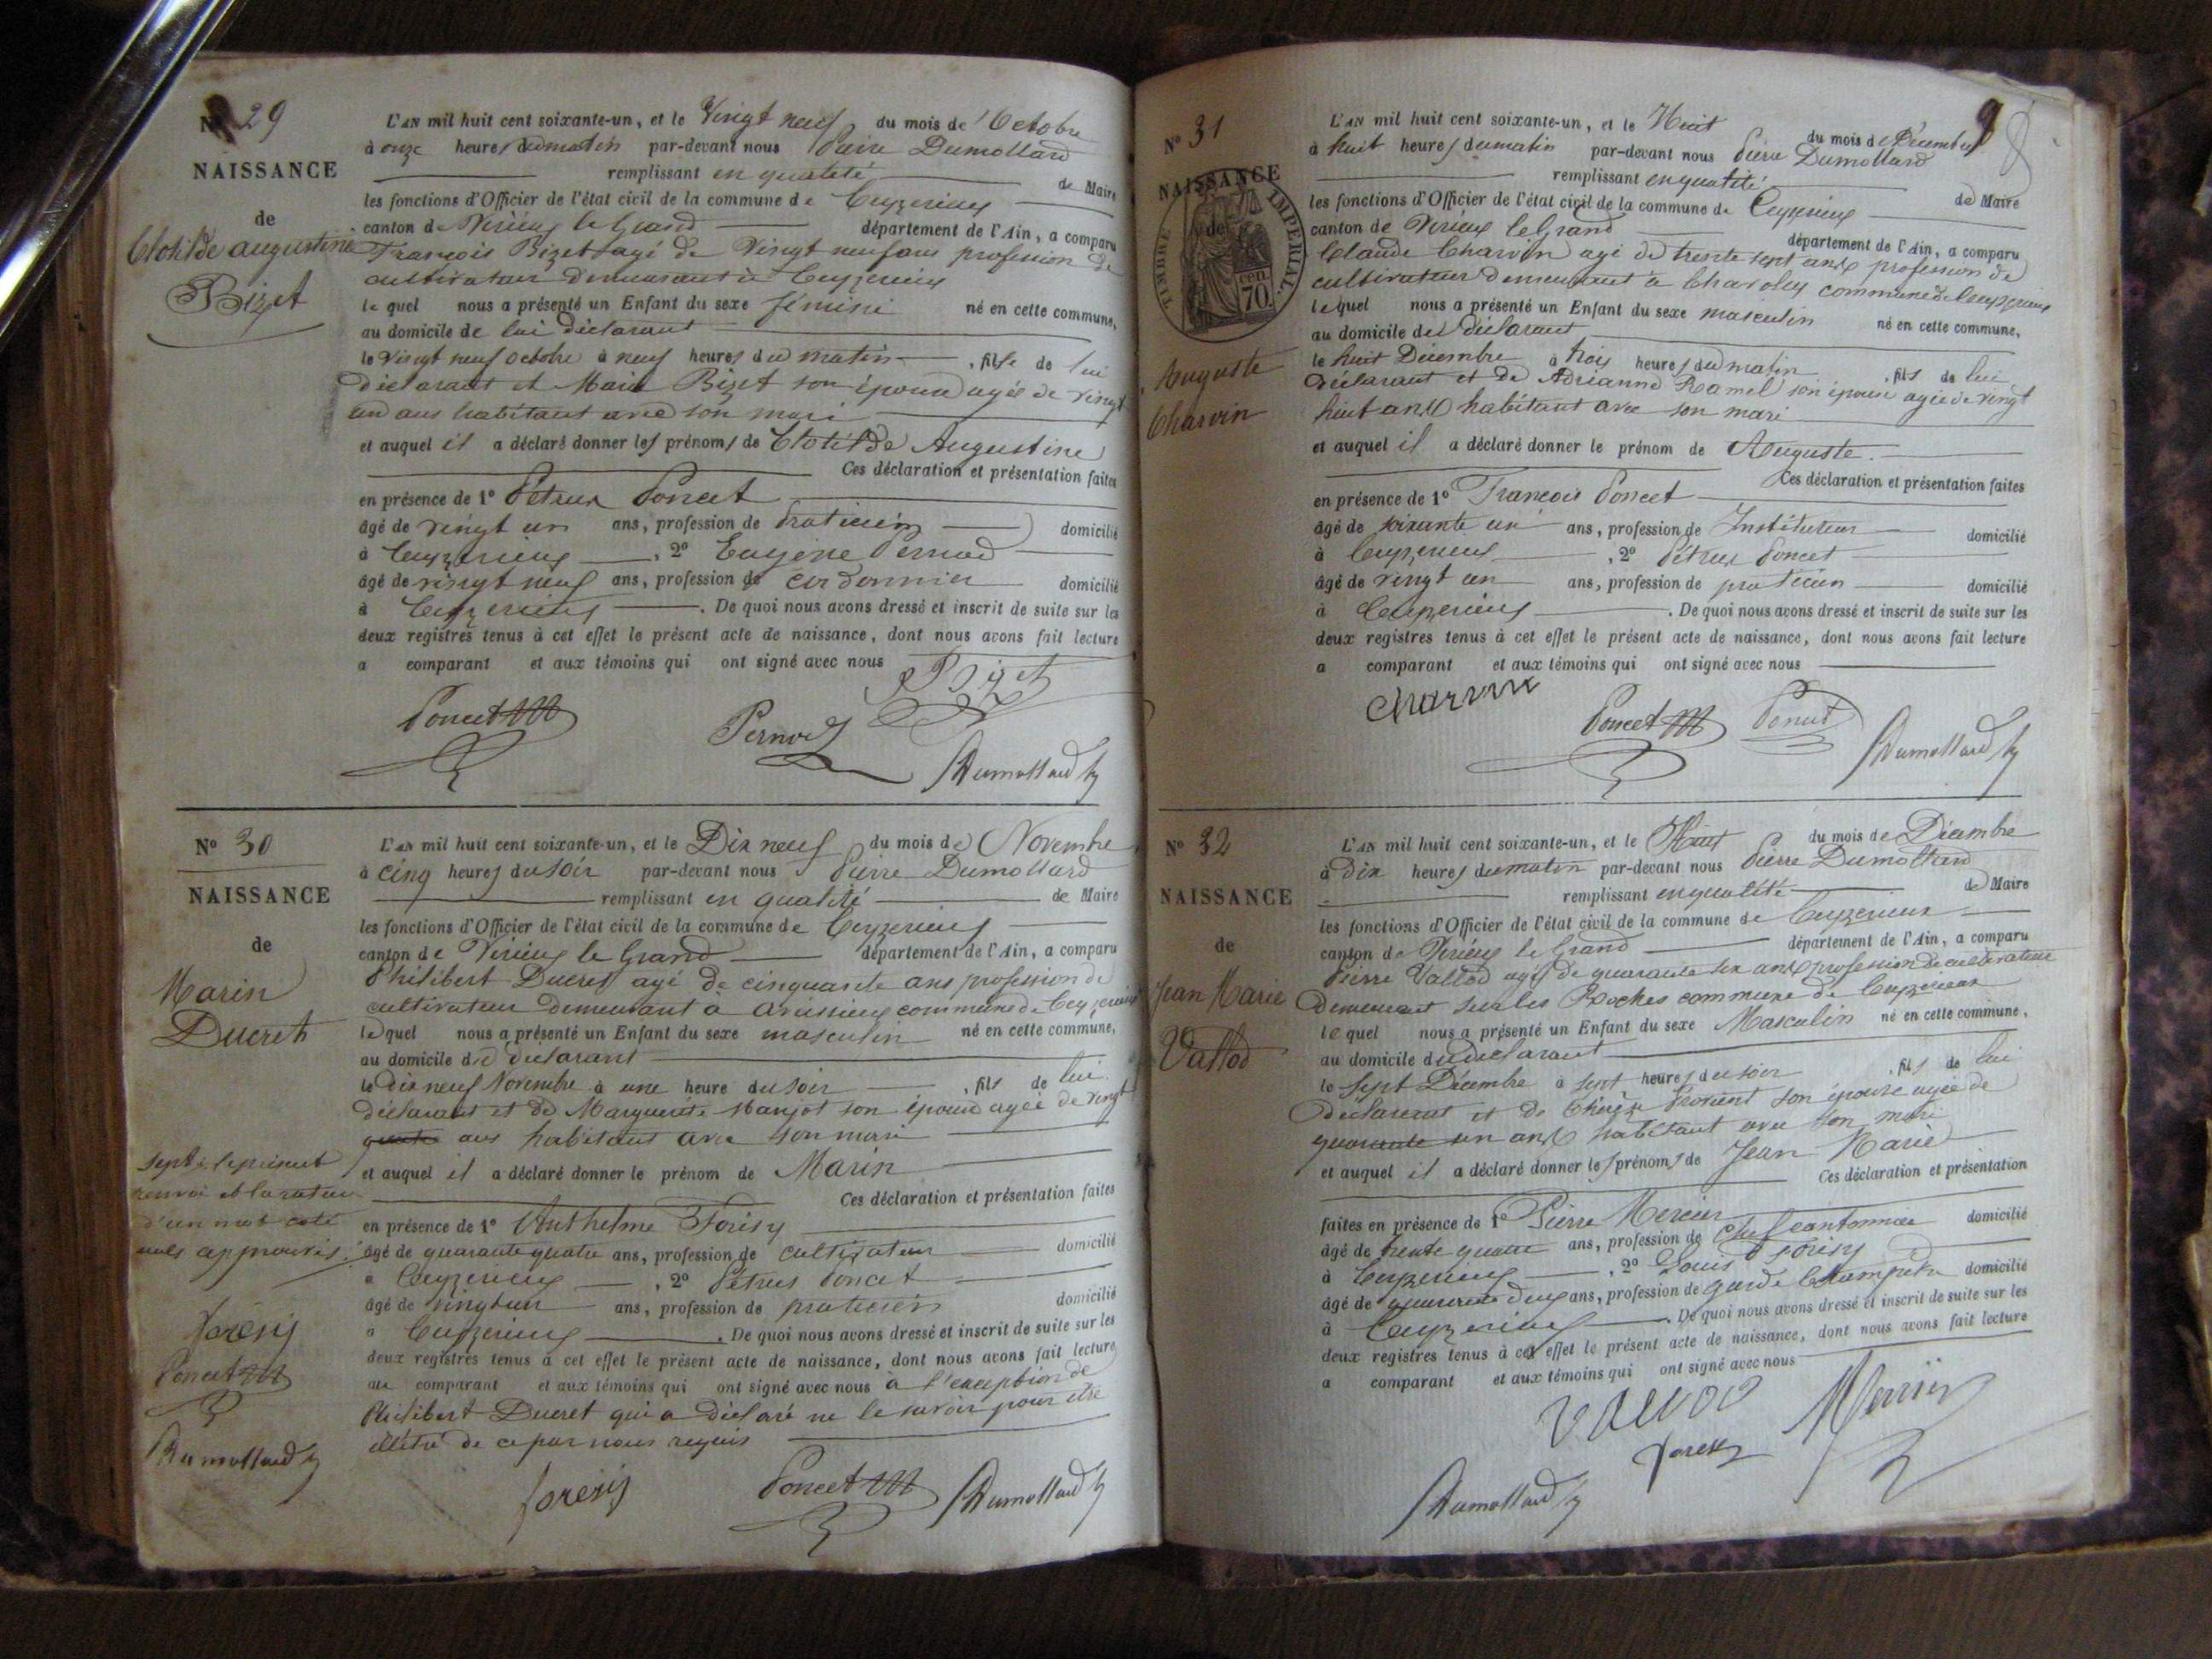 Nº 29
NAISSANCE
de
Clotilde augustine
Bizet
L'AN mil huit cent soixante-un, et le Vingt neuf du mois de Octobre
à onze heures du matin par-devant nous Pierre Dumollard
remplissant en qualité de Maire
les fonctions d'Officier de l'état civil de la commune de Ceyzerieu
canton de Virieu le Grand département de l'Ain, a comparu
François Bizet agé de Vingt neuf ans profession de
cultivateur demeurant à Ceyzerieu
le quel nous a présenté un Enfant du sexe féminin né en cette commune,
au domicile de lui déclarant
le vingt neuf octobre à neuf heures du matin, fille de lui
déclarant et Marie Bizet son épouse agée de vingt
un ans habitant avec son mari
et auquel il a déclaré donner les prénoms de Clotilde Augustine
Ces déclaration et présentation faites
en présence de 1º Pétrus Poncet
âgé de vingt un ans, profession de Praticien domicilié
à Ceyzerieu, 2º Eugène Pernod
âgé de vingt neuf ans, profession de cordonnier domicilié
à Ceyzerieu. De quoi nous avons dressé et inscrit de suite sur les
deux registres tenus à cet effet le présent acte de naissance, dont nous avons fait lecture
a comparant et aux témoins qui ont signé avec nous
Bizet
Poncet
Pernod
Dumollard
Nº 30
NAISSANCE
de
Marin
Ducret
L'AN mil huit cent soixante-un, et le Dix neuf du mois de Novembre
à cinq heures du soir par-devant nous Pierre Dumollard
remplissant en qualité de Maire
les fonctions d'Officier de l'état civil de la commune de Ceyzerieu
canton de Virieu le Grand département de l'Ain, a comparu
Philibert Ducret agé de cinquante ans profession de
cultivateur demeurant à avissieu commune de Ceyzerieu
le quel nous a présenté un Enfant du sexe masculin né en cette commune,
au domicile du déclarant
le Dix neuf Novembre à une heure du soir, fils de lui
déclarant et de Marguerite Manjot son épouse agée de vingt
ans habitant avec son mari
sept le présent
renvoi et la rature
d'un mot coté
nuls approuvés.
et auquel il a déclaré donner le prénom de Marin
Ces déclaration et présentation faites
en présence de 1º Anthelme Forésy
âgé de quarante quatre ans, profession de cultivateur domicilié
à Ceyzerieu, 2º Pétrus Poncet
âgé de vingt un ans, profession de praticien domicilié
à Ceyzerieu. De quoi nous avons dressé et inscrit de suite sur les
deux registres tenus à cet effet le présent acte de naissance, dont nous avons fait lecture
au comparant et aux témoins qui ont signé avec nous à l'exception de
Philibert Ducret qui a déclaré ne le savoir pour être
illétré de ce par nous requis
Forésy
Poncet
Dumollard
forésy
Poncet
Dumollard
9
Nº 31
NAISSANCE
de
TIMBRE IMPERIAL
70 cen.
Auguste
Charvin
L'AN mil huit cent soixante-un, et le Huit du mois de Décembre
à huit heures du matin par-devant nous Pierre Dumollard
remplissant en qualité de Maire
les fonctions d'Officier de l'état civil de la commune de Ceyzerieu
canton de Virieu le Grand département de l'Ain, a comparu
Claude Charvin agé de trente sept ans profession de
cultivateur demeurant à Charoley commune de Ceyzerieu
le quel nous a présenté un Enfant du sexe masculin né en cette commune,
au domicile du déclarant
le huit Décembre à trois heures du matin, fils de lui
déclarant et de Adrianne Ramel son épouse agée de vingt
huit ans habitant avec son mari
et auquel il a déclaré donner le prénom de Auguste.
Ces déclaration et présentation faites
en présence de 1º François Poncet
âgé de soixante un ans, profession de Instituteur domicilié
à Ceyzerieu, 2º Pétrus Poncet
âgé de vingt un ans, profession de praticien domicilié
à Ceyzerieu. De quoi nous avons dressé et inscrit de suite sur les
deux registres tenus à cet effet le présent acte de naissance, dont nous avons fait lecture
a comparant et aux témoins qui ont signé avec nous
Charvin
Poncet
Poncet
Dumollard
Nº 32
NAISSANCE
de
Jean Marie
Vallod
L'AN mil huit cent soixante-un, et le Huit du mois de Décembre
à Dix heures du matin par-devant nous Pierre Dumollard
remplissant en qualité de Maire
les fonctions d'Officier de l'état civil de la commune de Ceyzerieu
canton de Virieu le Grand département de l'Ain, a comparu
Pierre Vallod agé de quarante six ans profession de cultivateur
demeurant sur les Roches commune de Ceyzerieu
le quel nous a présenté un Enfant du sexe Masculin né en cette commune,
au domicile du déclarant
le sept Décembre à sept heures du soir, fils de lui
déclarant et de Thérèze son épouse agée de
quarante un ans habitant avec son mari
et auquel il a déclaré donner les prénoms de Jean Marie
Ces déclaration et présentation
faites en présence de 1º Pierre Mercier
âgé de trente quatre ans, profession de chef cantonnier domicilié
à Ceyzerieu, 2º Louis Forésy
âgé de quarante deux ans, profession de garde Champêtre domicilié
à Ceyzerieu. De quoi nous avons dressé et inscrit de suite sur les
deux registres tenus à cet effet le présent acte de naissance, dont nous avons fait lecture
a comparant et aux témoins qui ont signé avec nous
Vallod
Mercier
foresy
Dumollard